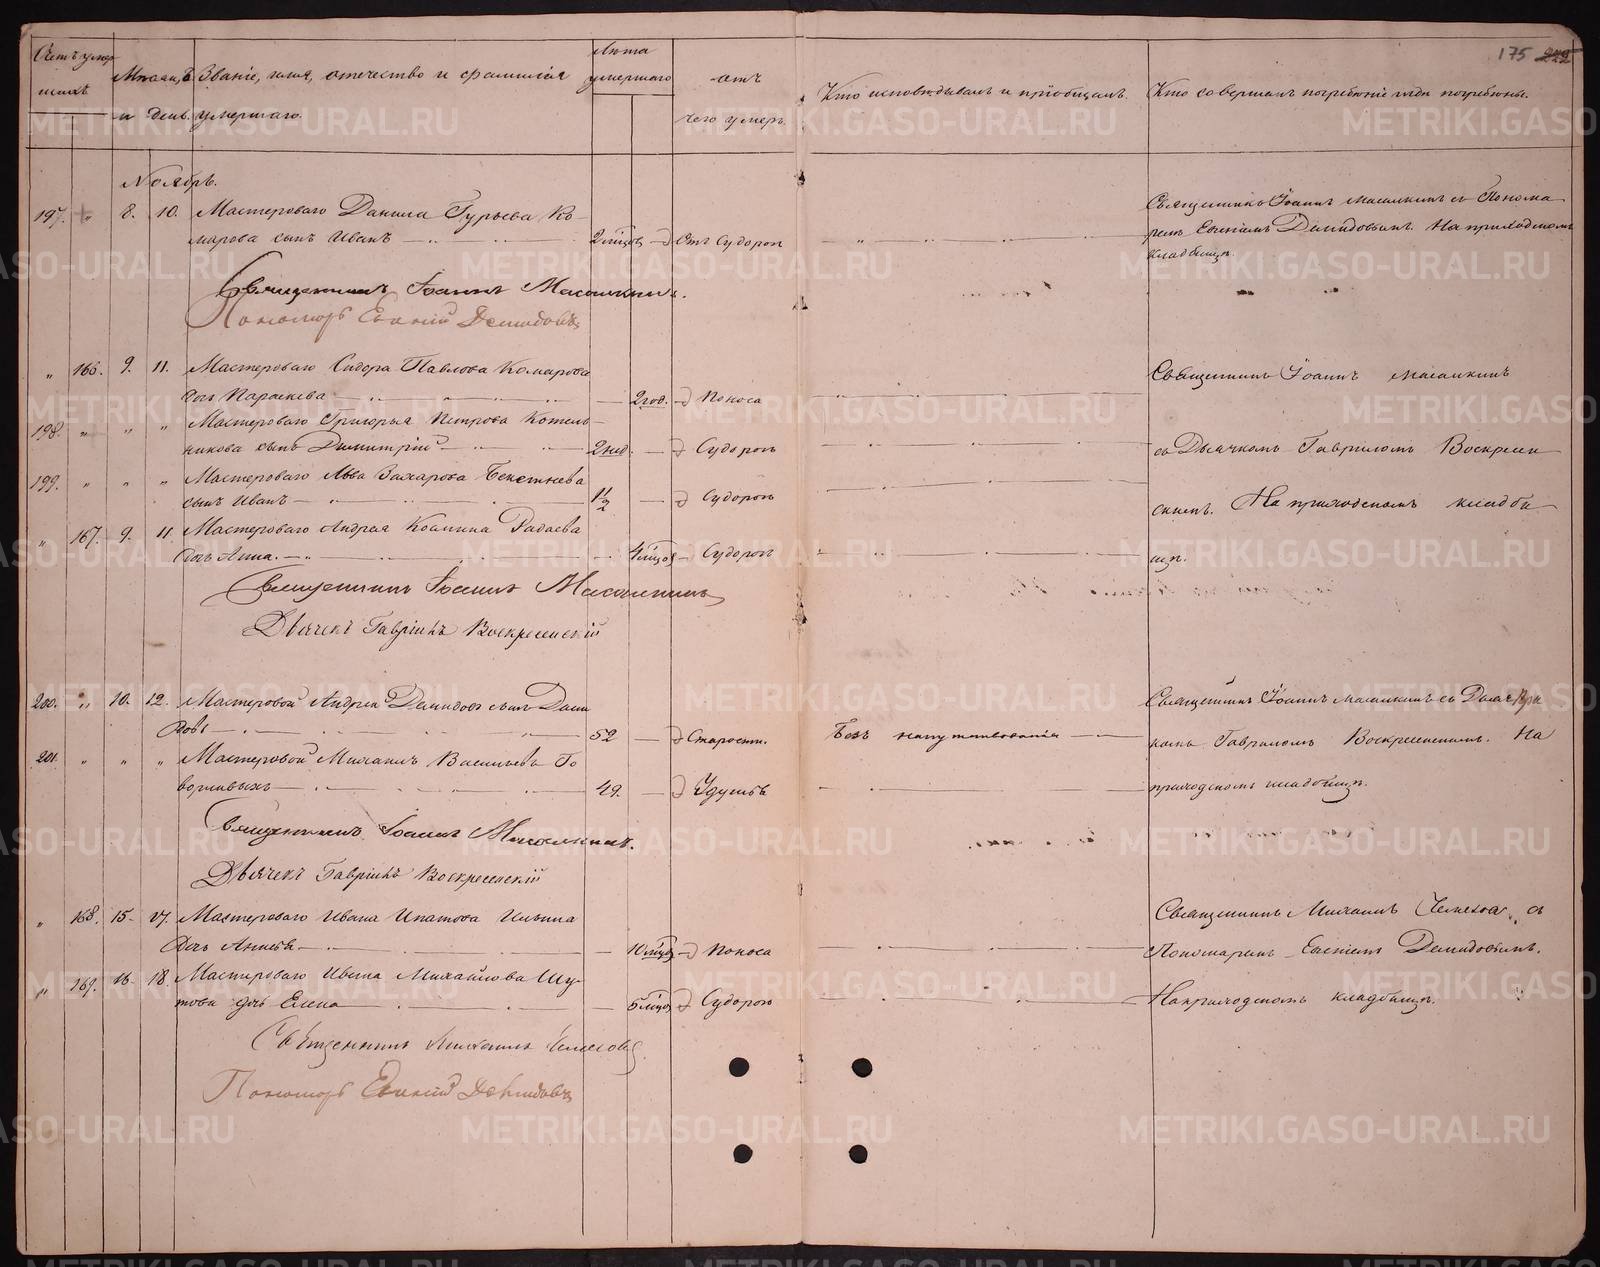 175 242
Счетъ умер
шихъ
Мѣсяцъ
и день.
Званіе, имя, отечество и фамилія
умершаго.
Лѣта
умершаго
отъ
чего умеръ.
Кто исповѣдывалъ и пріобщалъ.
Кто совершалъ погребеніе и гдѣ погребены.
Ноябрь.
197. " 8. 10. Мастероваго Данила Гурьева Ко-
марова сынъ Иванъ 2 мѣсяцовъ Отъ Судорогъ
Священникъ Іоаннъ Масалкинъ съ Понома
ремъ Евгеніемъ Демидовымъ. На приходскомъ
кладбищѣ.
Священникъ Іоаннъ Масалкинъ.
Пономарь Евгеній Демидовъ
" 166. 9. 11. Мастероваго Сидора Павлова Комарова
дочь Параскева 2 год. Поноса
198. " " " Мастероваго Григорья Петрова Котель-
никова сынъ Димитрій 2 нед. Судорогъ
199. " " " Мастероваго Льва Захарова
сынъ Иванъ 1 1/2 Судорогъ
" 167. 9. 11. Мастероваго Андрея Козмина
дочь Анна. 4 мѣсяцов Судорогъ
Священникъ Іоаннъ Масалкинъ
съ Дьячкомъ Гавріиломъ Воскресен
скимъ. На приходскомъ кладби
щѣ.
Священникъ Іоаннъ Масалкинъ
Дьячекъ Гавріилъ Воскресенскій
200. " 10. 12. Мастеровой Андрей Демидовъ сынъ
52 Старости. Безъ напутствованія
201. " " " Мастеровой Михаилъ Васильевъ Го
ворливыхъ 49. Удушья
Священникъ Іоаннъ Масалкинъ съ
комъ Гавріиломъ Воскресенскимъ. На
приходскомъ кладбищѣ.
Священникъ Іоаннъ Масалкинъ.
Дьячекъ Гавріилъ Воскресенскій
" 168. 15. 17. Мастероваго Ивана Ипатова Ильина
дочь 10 мѣсяцов Поноса
" 169. 16. 18. Мастероваго Ивана Михайлова Шу-
това дочь Елена 5 мѣсяцов Судорогъ
Священникъ Михаилъ съ
Пономаремъ Евгеніемъ Демидовымъ.
На приходскомъ кладбищѣ.
Священникъ Михаилъ
Пономарь Евгеній Демидовъ
METRIKI.GASO-URAL.RU